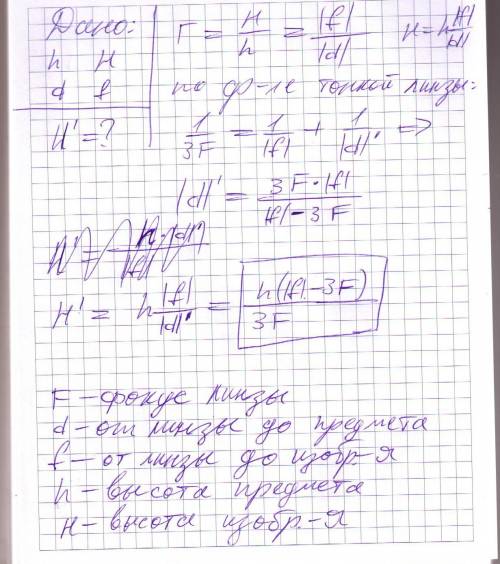 Дано:
h H
d f
H' = ?
Г = H/h = |f|/|d| H = h|f|/|d|
по ф-ле тонкой линзы:
1/3F = 1/|f| + 1/|d|' ⇒
|d|' = 3F·|f|/|f|-3F
H' = h|f|/|d|' = h(|f|-3F)/3F
F - фокус линзы
d - от линзы до предмета
f - от линзы до изобр-я
h - высота предмета
H - высота изобр.-я